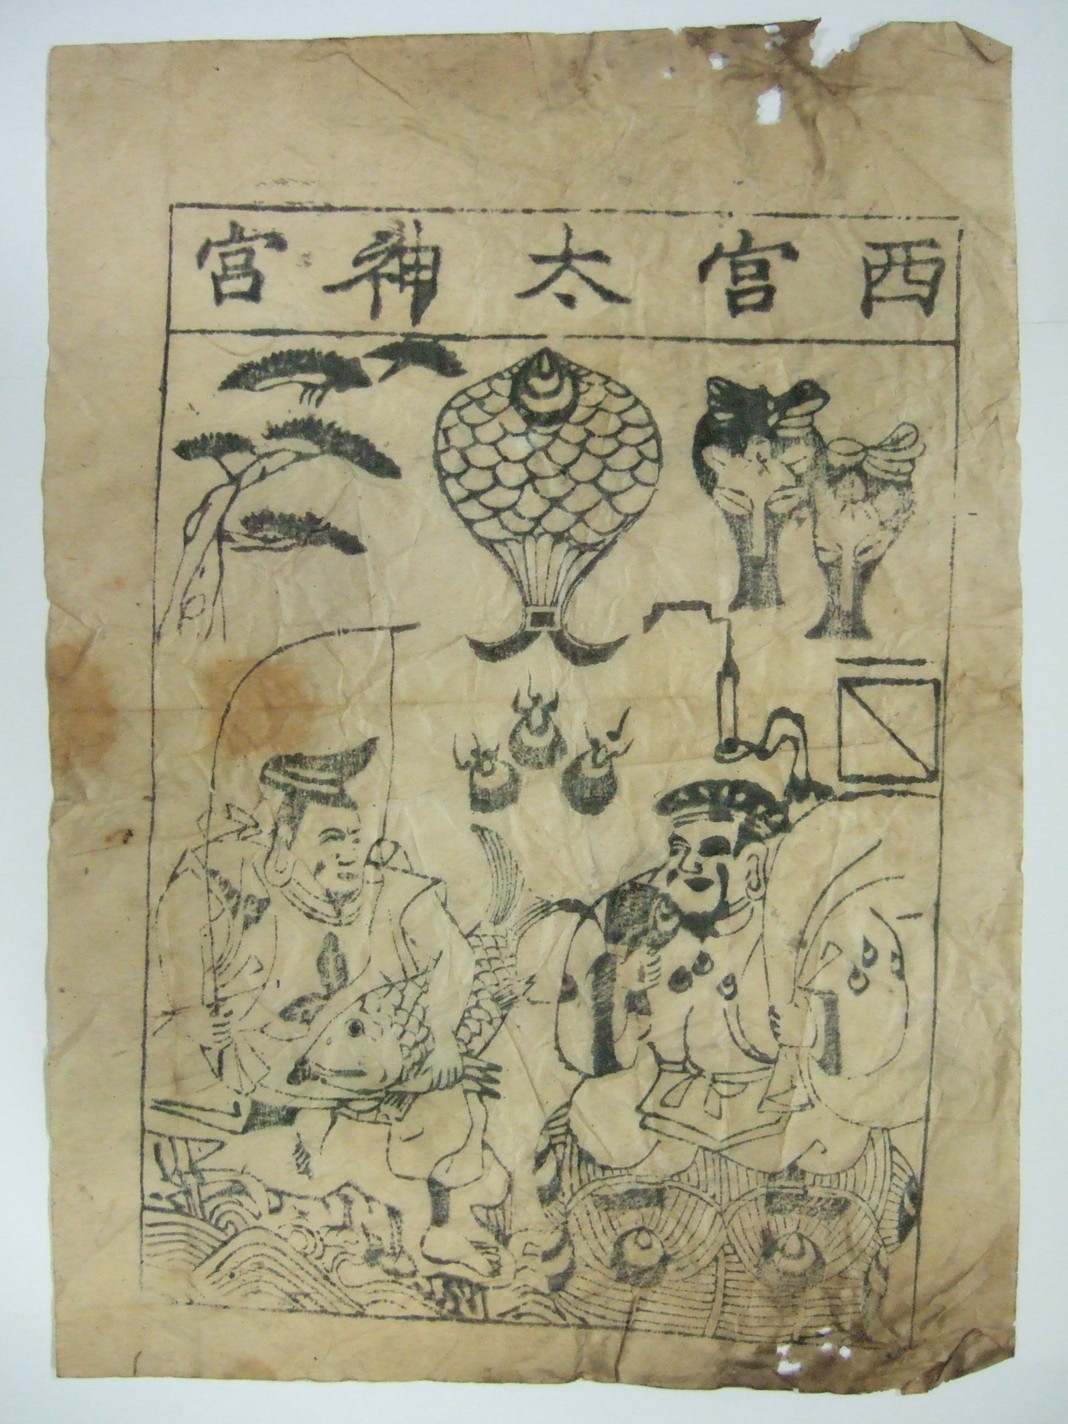 西宮太神宮